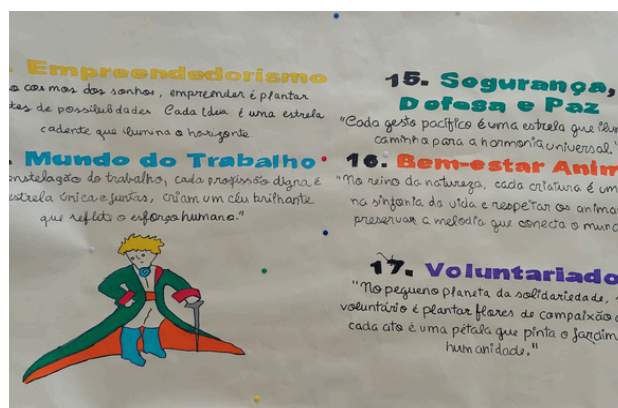 . Empreendedorismo
o cosmos dos sonhos, empreender é plantar
tes de possibilidades. Cada ideia é uma estrela
cadente que ilumina o horizonte.
. Mundo do Trabalho
nstelação do trabalho, cada profissão digna é
estrela única e juntas, criam um céu brilhante
que reflete o esforço humano."
15. Segurança,
Defesa e Paz
"Cada gesto pacífico é uma estrela que ilum
caminho para a harmonia universal."
16. Bem-estar Anim
"No reino da natureza, cada criatura é um
na sinfonia da vida e respeitar os anima
preservar a melodia que conecta o mund
17. Voluntariado
"No pequeno planeta da solidariedade,
voluntário é plantar flores de compaixão
cada ato é uma pétala que pinta o jardim
humanidade."